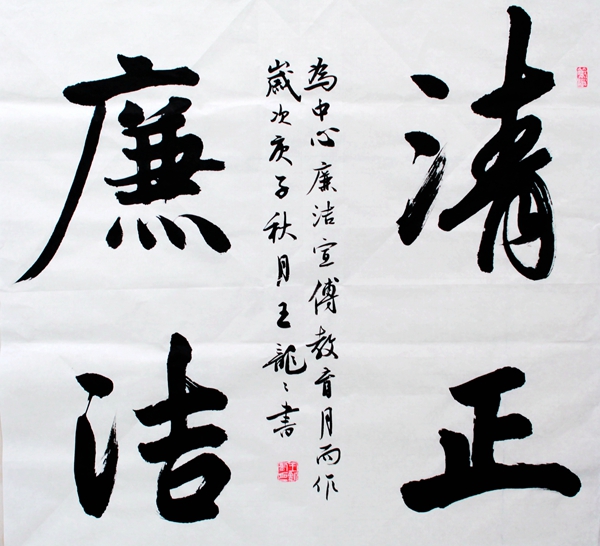 清正
為中心廉洁宣傳教育月而作
歲次庚子秋月王龍〻書
廉洁